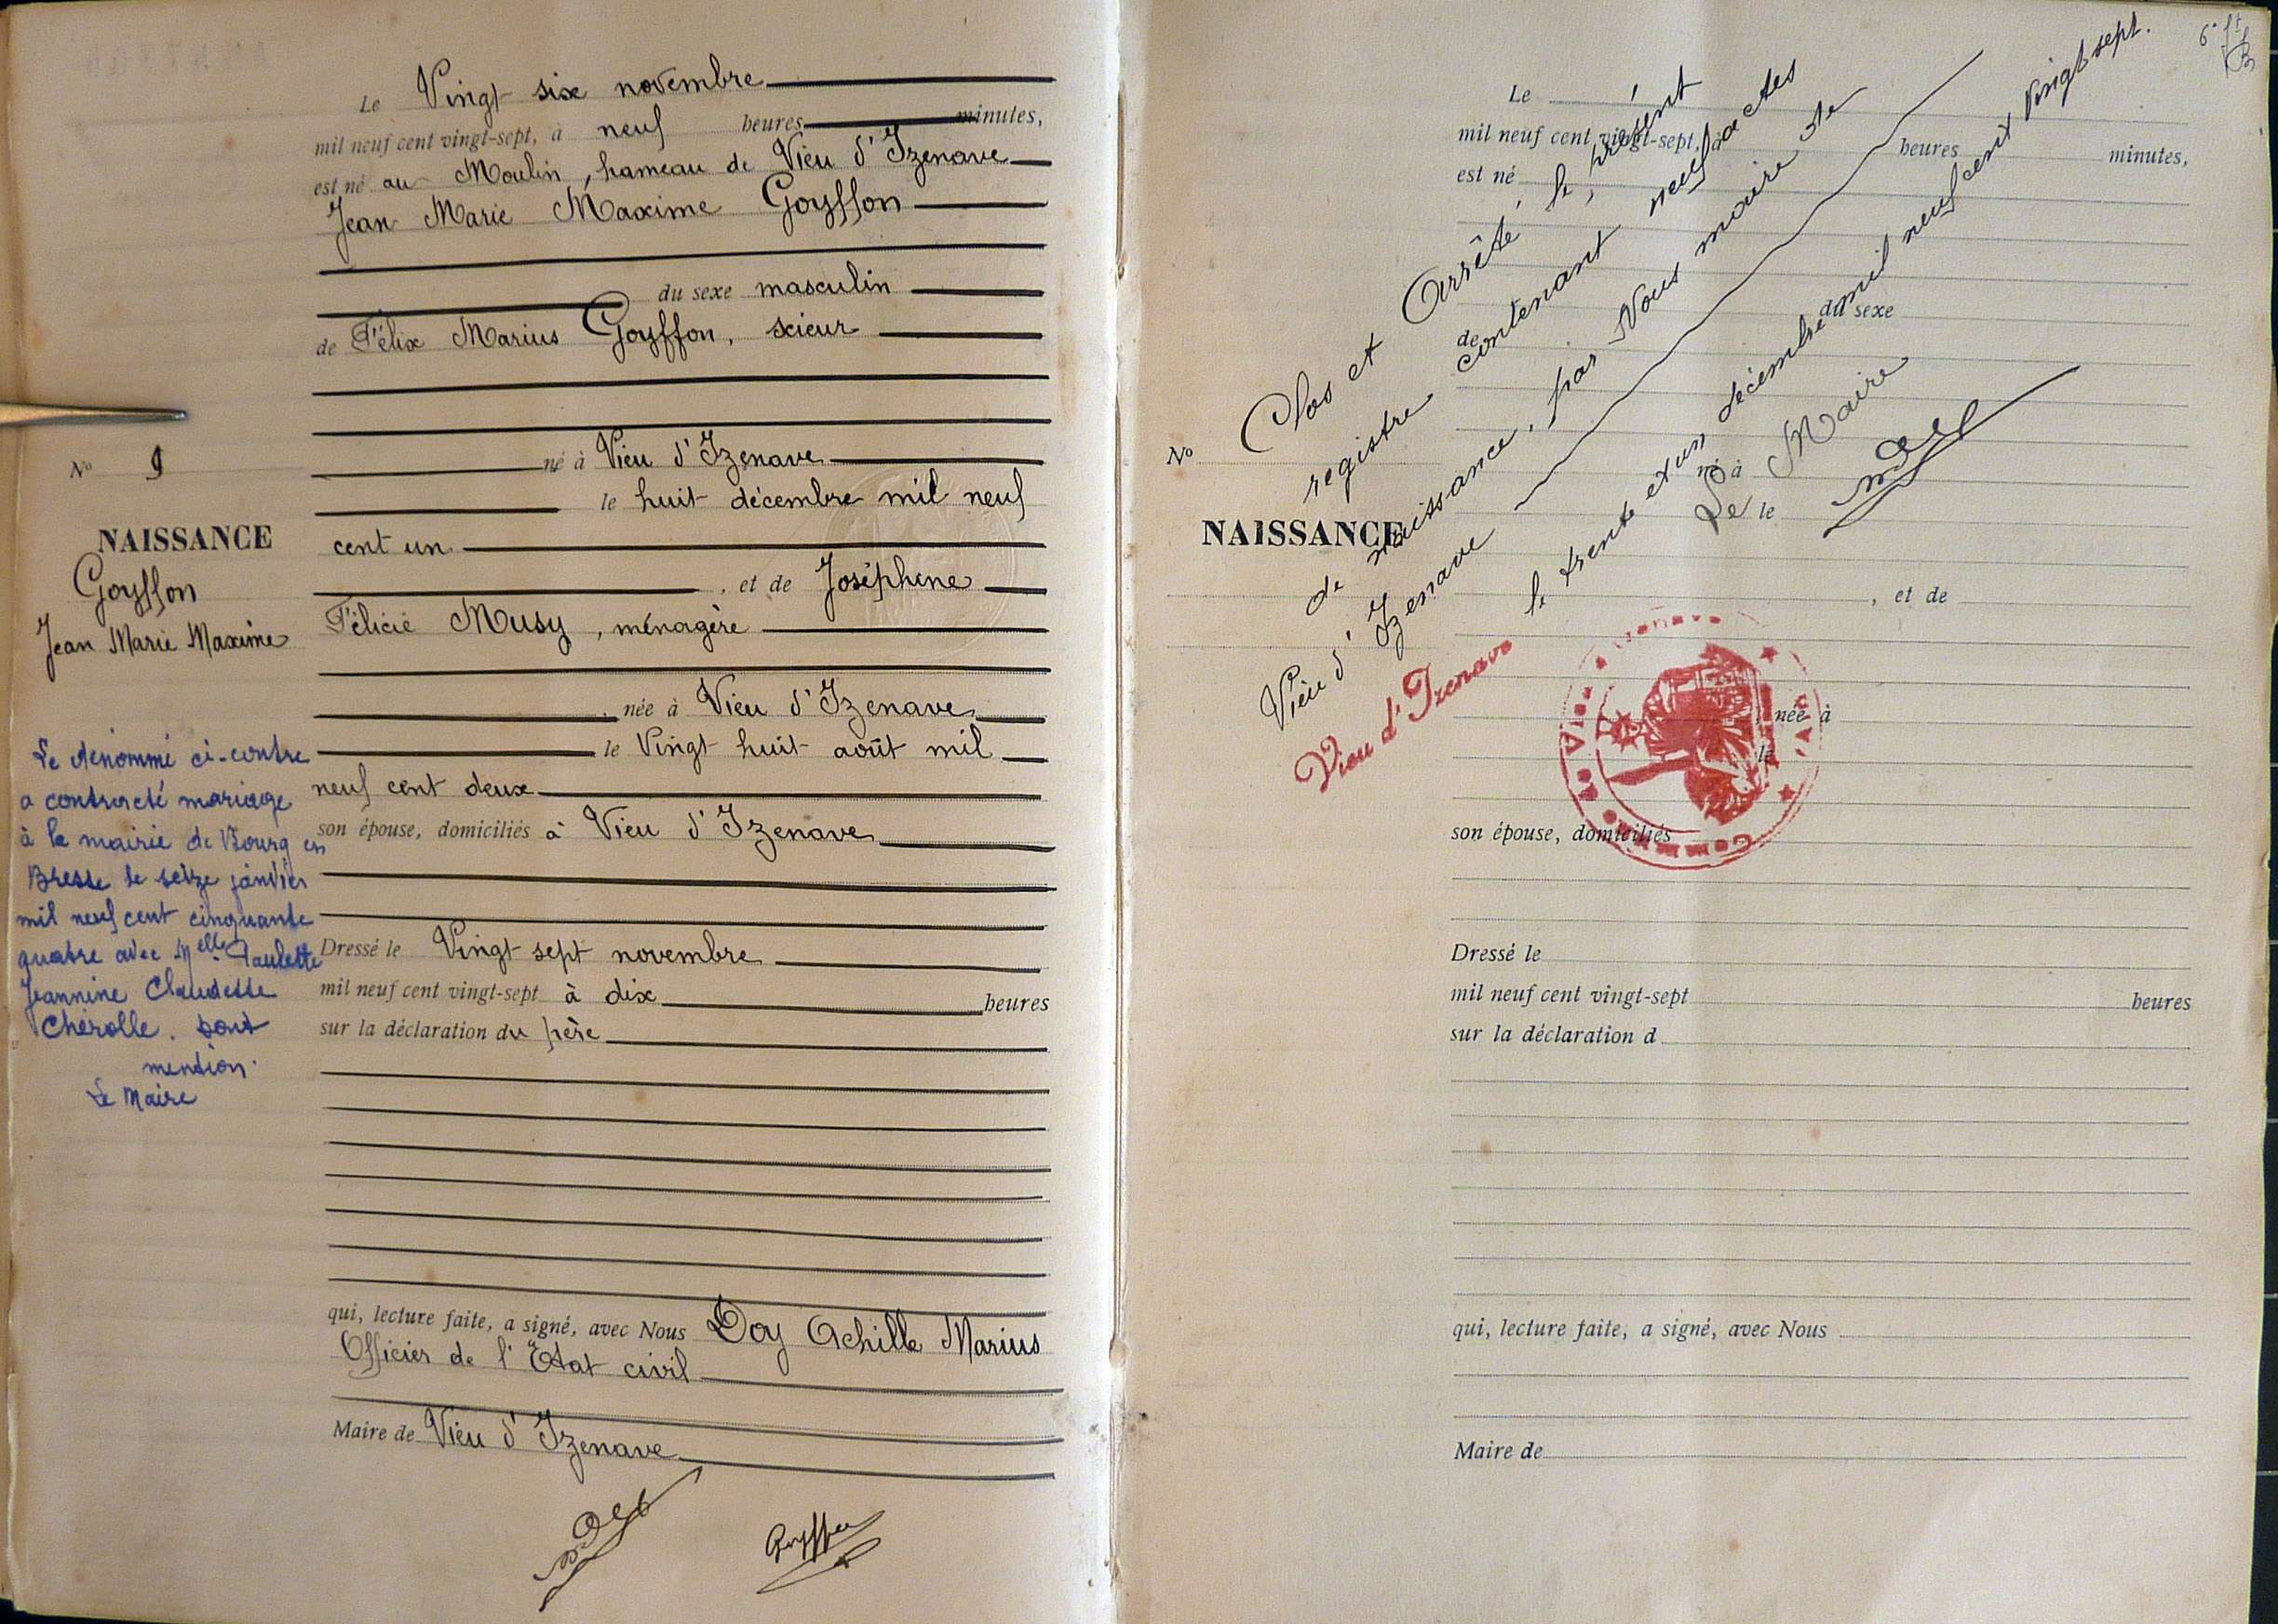 Le Vingt six novembre
mil neuf cent vingt-sept, à neuf heures minutes,
est né au Moulin, hameau de Vieu d'Izenave
Jean Marie Maxime Goyffon
du sexe masculin
de Félix Marius Goyffon, scieur
né à Vieu d'Izenave
le huit décembre mil neuf
cent un
, et de Joséphine
Félicie Musy, ménagère
, née à Vieu d'Izenave
le Vingt huit août mil
neuf cent deux
son épouse, domiciliés à Vieu d'Izenave
Dressé le Vingt sept novembre
mil neuf cent vingt-sept à dix heures
sur la déclaration du père
qui, lecture faite, a signé, avec Nous Doy Achille Marius
Officier de l'Etat civil
Maire de Vieu d'Izenave
Goyffon
No 9
NAISSANCE
Goyffon
Jean Marie Maxime
Le dénommé ci-contre
a contracté mariage
à la mairie de Bourg en
Bresse le seize janvier
mil neuf cent cinquante
quatre avec Melle Paulette
Jeannine Claudette
Chérolle. Dont
mention.
Le Maire
Le
mil neuf cent vingt-sept, à heures minutes,
est né
du sexe
de
No
né à
le
NAISSANCE
, et de
, née à
le
son épouse, domiciliés
Dressé le
mil neuf cent vingt-sept heures
sur la déclaration d
qui, lecture faite, a signé, avec Nous
Maire de
Clos et Arrêté, le présent
registre contenant neuf actes
de naissance, par Nous maire de
Vieu d'Izenave
le trente et un décembre mil neuf cent vingt sept.
Le Maire
Vieu d'Izenave